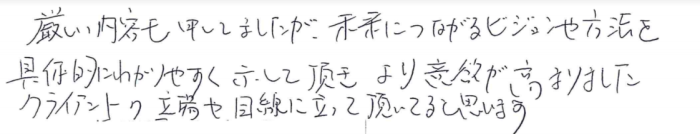 厳しい内容も申してましたが、未来につながるビジョンや方法を
具体的にわかりやすく示して頂き より意欲が高まりました
クライアントの立場や目線に立って頂いてると思います